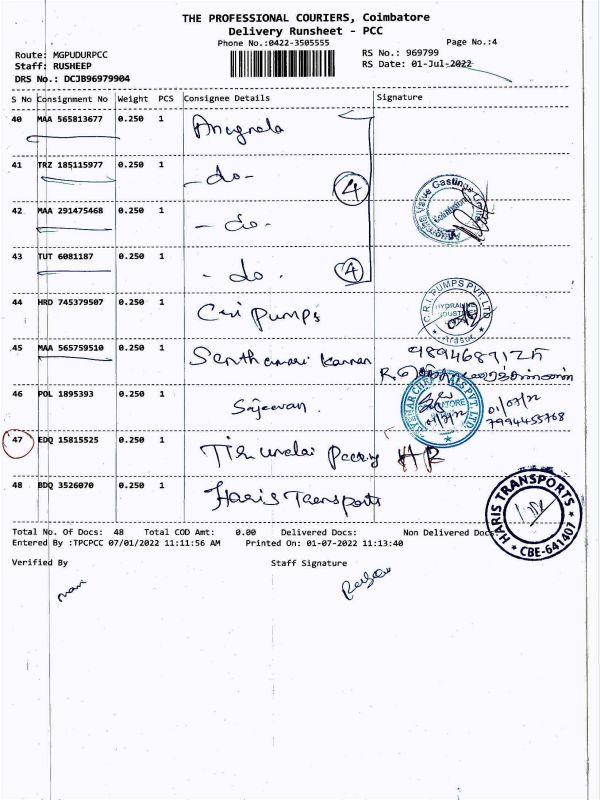 THE PROFESSIONAL COURIERS, Coimbatore
Delivery Runsheet - PCC
Phone No.:0422-3505555
Page No.:4
Route: MGPUDURPCC
RS No.: 969799
Staff: RUSHEEP
RS Date: 01-Jul-2022
DRS No.: DCJB96979904
S No Consignment No Weight PCS Consignee Details Signature
40 MAA 565813677 0.250 1
41 TRZ 185115977 0.250 1 -do-
4
42 MAA 291475468 0.250 1 -do-
43 TUT 6081187 0.250 1 -do.
4
44 HRD 745379507 0.250 1 Cri Pumps
C.R.I. PUMPS PVT. LTD
45 MAA 565759510 0.250 1 Kannan
46 POL 1895393 0.250 1 Sajeevan.
01/07/22
7994455768
47 EDQ 15815525 0.250 1
48 BDQ 3526070 0.250 1 Haris Transports
HARIS TRANSPORTS
CBE-641407
Total No. Of Docs: 48 Total COD Amt: 0.00 Delivered Docs: Non Delivered Docs
Entered By :TPCPCC 07/01/2022 11:11:56 AM Printed On: 01-07-2022 11:13:40
Verified By Staff Signature